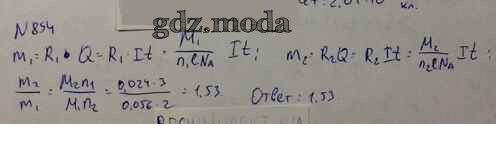 gdz.moda
кл.
N 854
m₁ = R₁ • Q = R₁ · It · M₁/(n₁eNₐ) It; m₂ = R₂Q = R₂ It = M₂/(n₂eNₐ) It;
m₂/m₁ = M₂n₁/M₁n₂ = 0,024·3/0,056·2 = 1,53 Ответ: 1,53